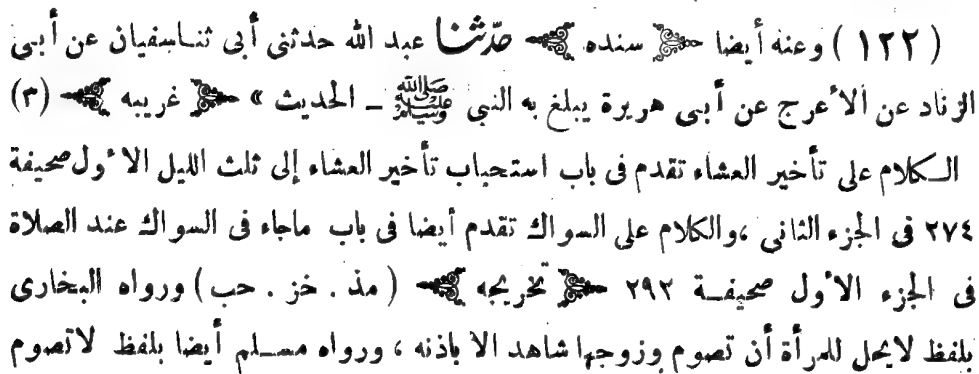 (١٢٢) وعنه أيضا ﴿سنده﴾ حدثنا عبد الله حدثنى أبى ثنا سفيان عن أبى
الزناد عن الأعرج عن أبى هريرة يبلغ به النبى ﷺ ــ الحديث » ﴿غريبه﴾ (٣)
الـكلام على تأخير العشاء تقدم فى باب استحباب تأخير العشاء إلى ثلث الليل الأول صحيفة
٢٧٤ فى الجزء الثانى ،والكلام على السواك تقدم أيضا فى باب ماجاء فى السواك عند الصلاة
فى الجزء الأول صحيفـة ٢٩٢ ﴿تخريجه﴾ (مذ . خز . حب) ورواه البخارى
بلفظ لايحل للمرأة أن تصوم وزوجها شاهد الا باذنه ، ورواه مسـلم أيضا بلفظ لاتصوم